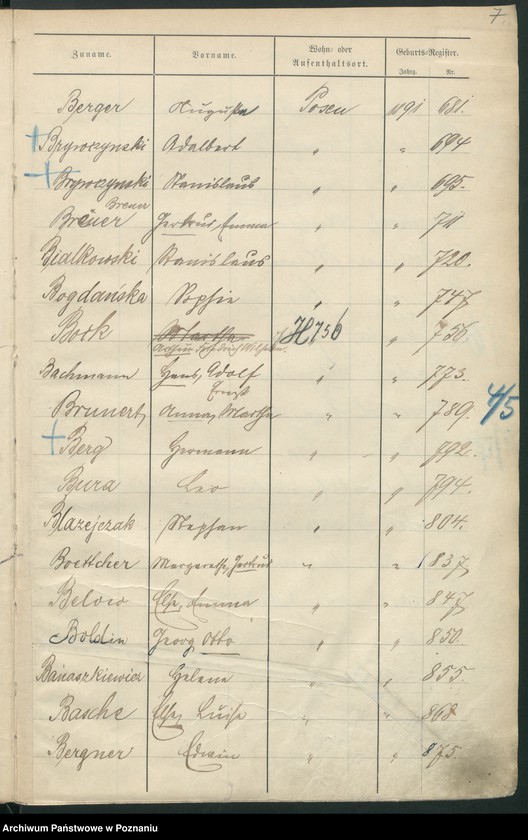 7
Zuname. Vorname. Wohn- oder Aufenthaltsort. Geburts-Register.
Jahrg. Nr.
Berger Auguste Posen 1891 681.
Brzyoczynski Adalbert " " 694
Brzyoczynski Stanislaus " " 695.
Breuer
Breuer Gertrud, Emma " " 711
Bialkowski Stanislaus " " 720.
Bogdańska Sophie " " 747
Bock Martha H 756 " 756.
Arthur Friedrich Wilhelm
Bachmann Hans, Adolf " " 773.
Ernst
Brunert, Anna, Martha " " 789. 4/5
Berg Hermann " " 792.
Bura Leo " " 794.
Blazejczak Stephan " " 804.
Boettcher Margarethe, Gertrud " " 837
Below Else, Emma " " 847
Boldin Georg Otto " " 850.
Banaszkiewicz Helene " " 855.
Basche Else, Luise " " 868
Bergner Edwin " " 875.
Archiwum Państwowe w Poznaniu